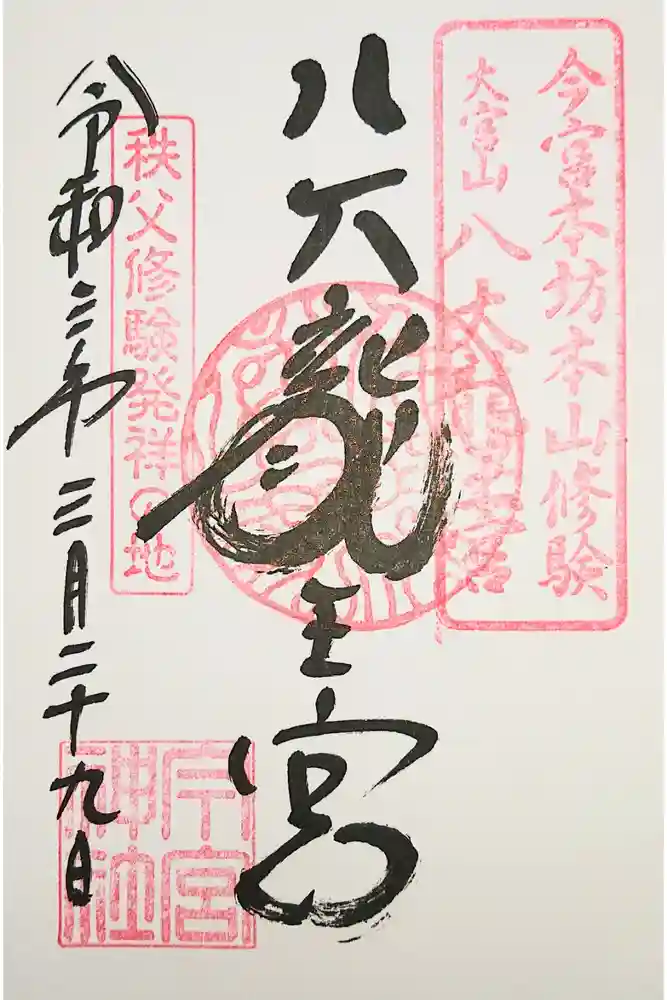 今宮本坊本山修験
大宮山八大龍王宮
八大龍王宮
秩父修験発祥の地
令和三年三月二十九日
今宮神社